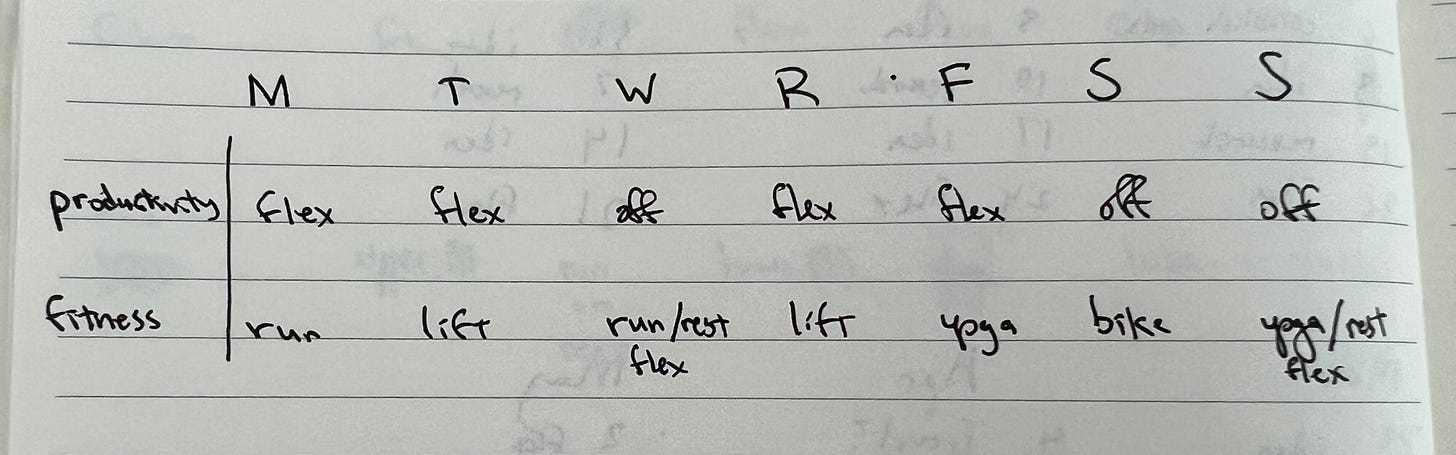 M T W R F S S
productivity flex flex off flex flex off off
fitness run lift run/rest lift yoga bike yoga/rest
flex flex